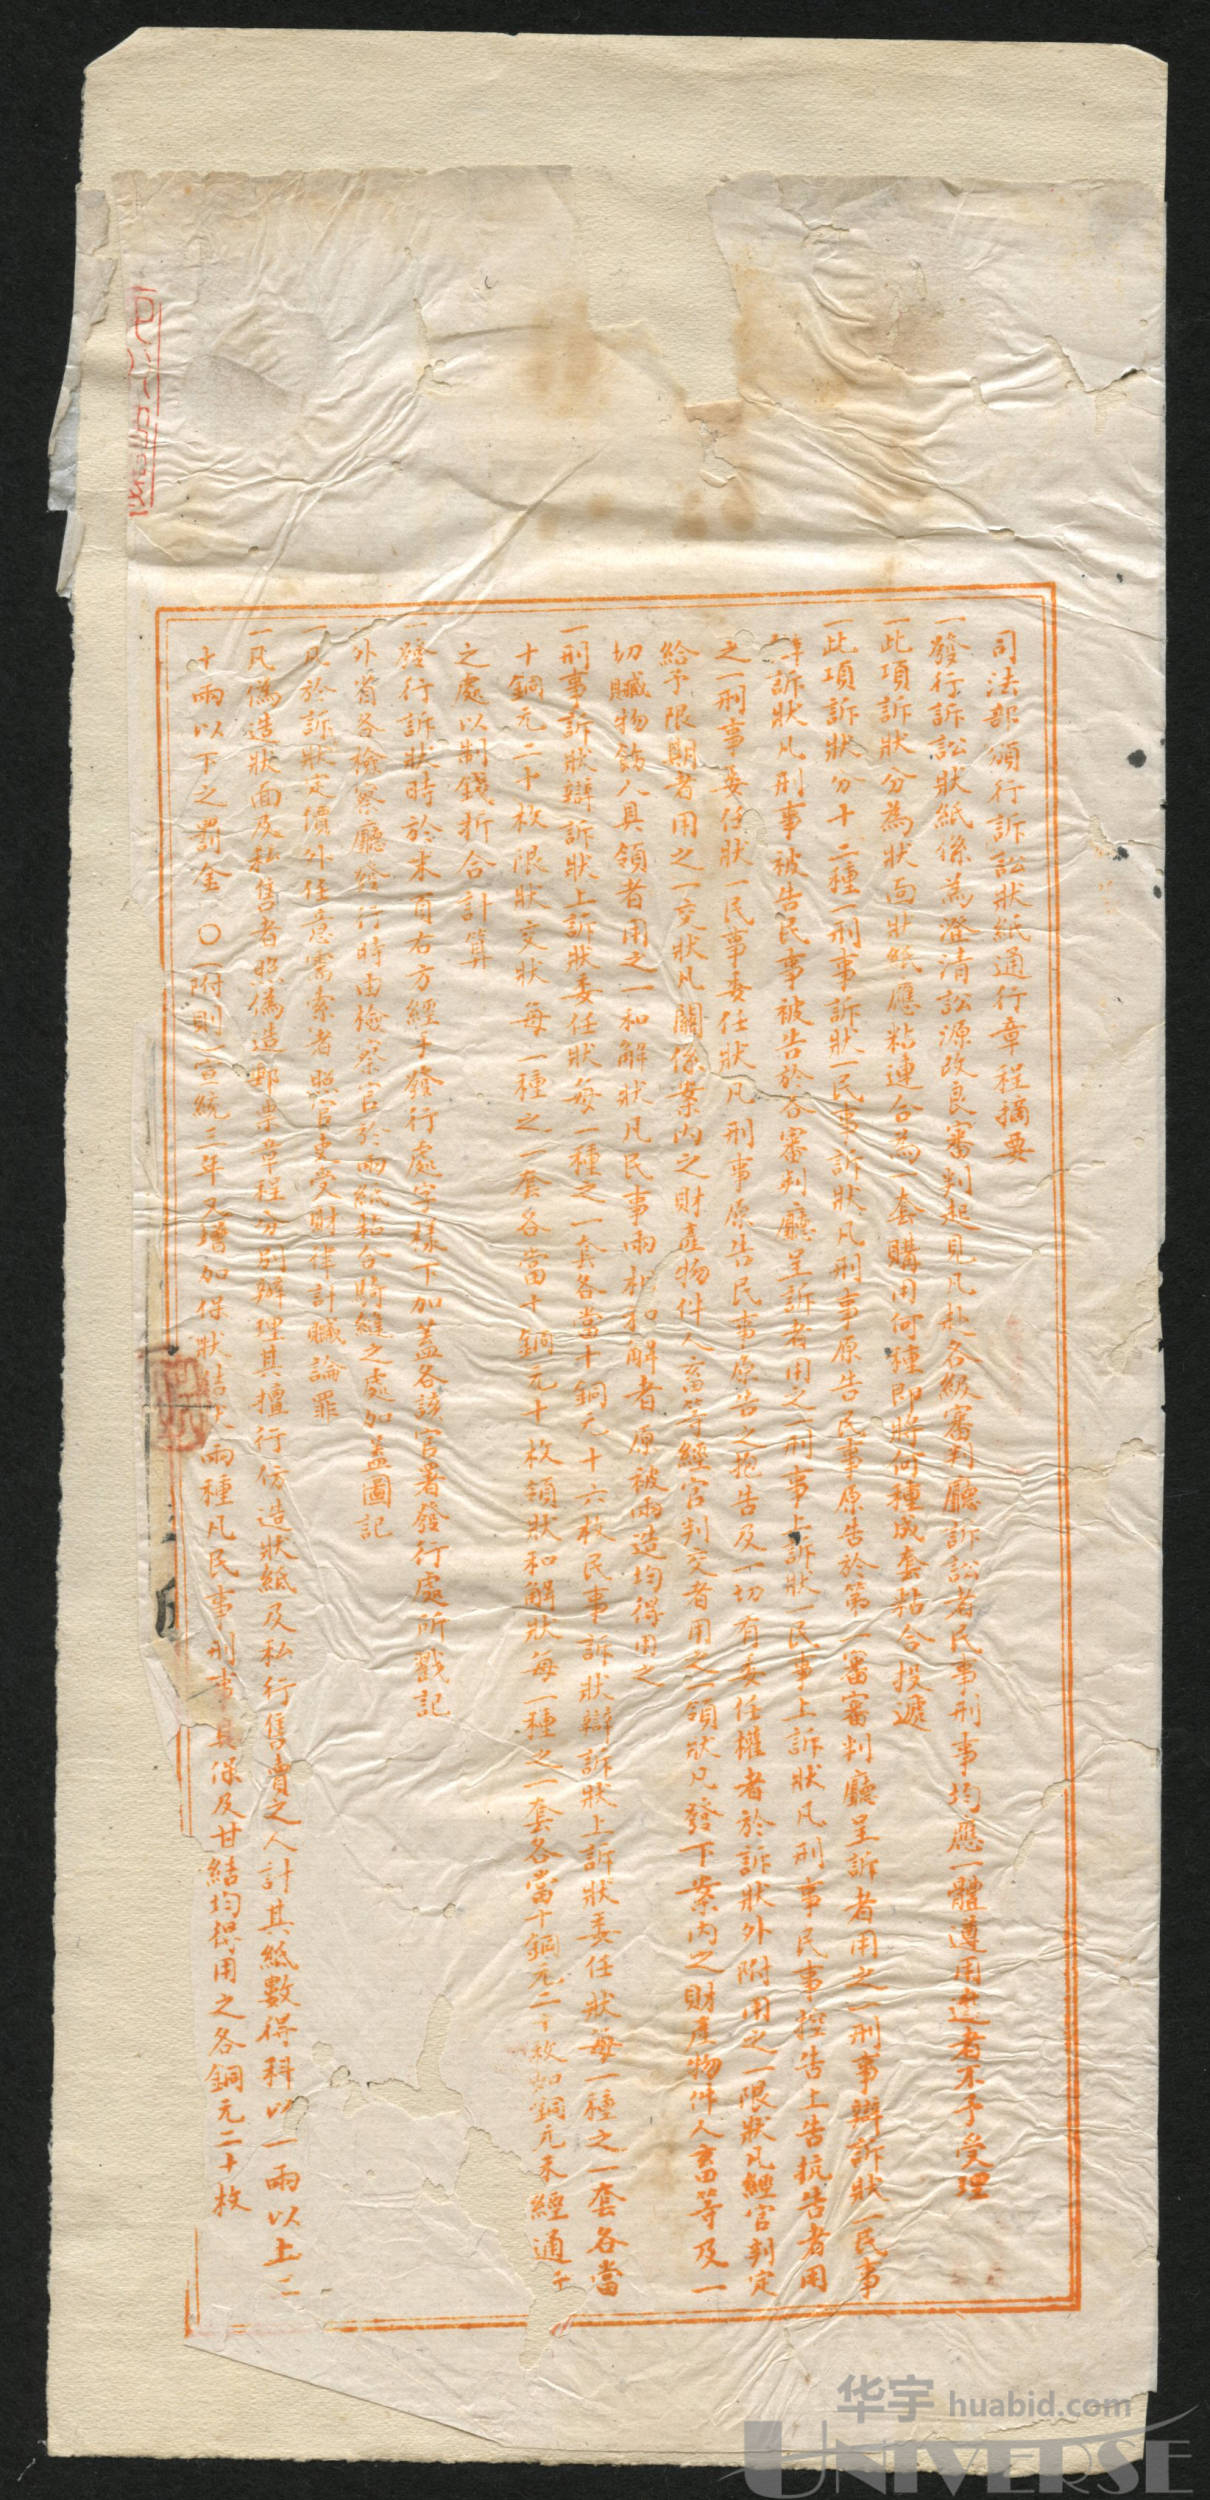 司法部頒行訴訟狀紙通行章程摘要
一發行訴訟狀紙係為澄清訟源改良審判起見凡赴各級審判廳訴訟者民事刑事均應一體遵用違者不予受理
一此項訴狀分為狀面狀紙應粘連合為一套購用何種即將何種成套粘合投遞
一此項訴狀分十二種一刑事訴狀一民事訴狀凡刑事原告民事原告於第一審審判廳呈訴者用之一刑事辯訴狀一民事
辯訴狀凡刑事被告民事被告於各審判廳呈訴者用之一刑事上訴狀一民事上訴狀凡刑事民事控告上告抗告者用
之一刑事委任狀一民事委任狀凡刑事原告民事原告之抱告及一切有委任權者於訴狀外附用之一限狀凡經官判定
給予限期者用之一交狀凡關係案內之財產物件人畜等經官判交者用之一領狀凡發下案內之財產物件人畜等及一
切贓物飭人具領者用之一和解狀凡民事兩相和解者原被兩造均得用之
一刑事訴狀辯訴狀上訴狀委任狀每一種之一套各當十銅元十六枚民事訴狀辯訴狀上訴狀委任狀每一種之一套各當
十銅元二十枚限狀交狀每一種之一套各當十銅元十枚領狀和解狀每一種之一套各當十銅元二十枚如銅元未經通行
之處以制錢折合計算
一發行訴狀時於末頁右方經手發行處字樣下加蓋各該官署發行處所戳記
外省各檢察廳發行時由檢察官於兩紙粘合騎縫之處加蓋圖記
一凡於訴狀定價外任意需索者照官吏受財律計贓論罪
一凡偽造狀面及私售者照偽造郵票章程分別辦理其擅行仿造狀紙及私行售賣之人計其紙數得科以一兩以上二
十兩以下之罰金〇一附則一宣統三年又增加保狀結狀兩種凡民事刑事具保及甘結均得用之各銅元二十枚
华宇 huabid.com
UNIVERSE